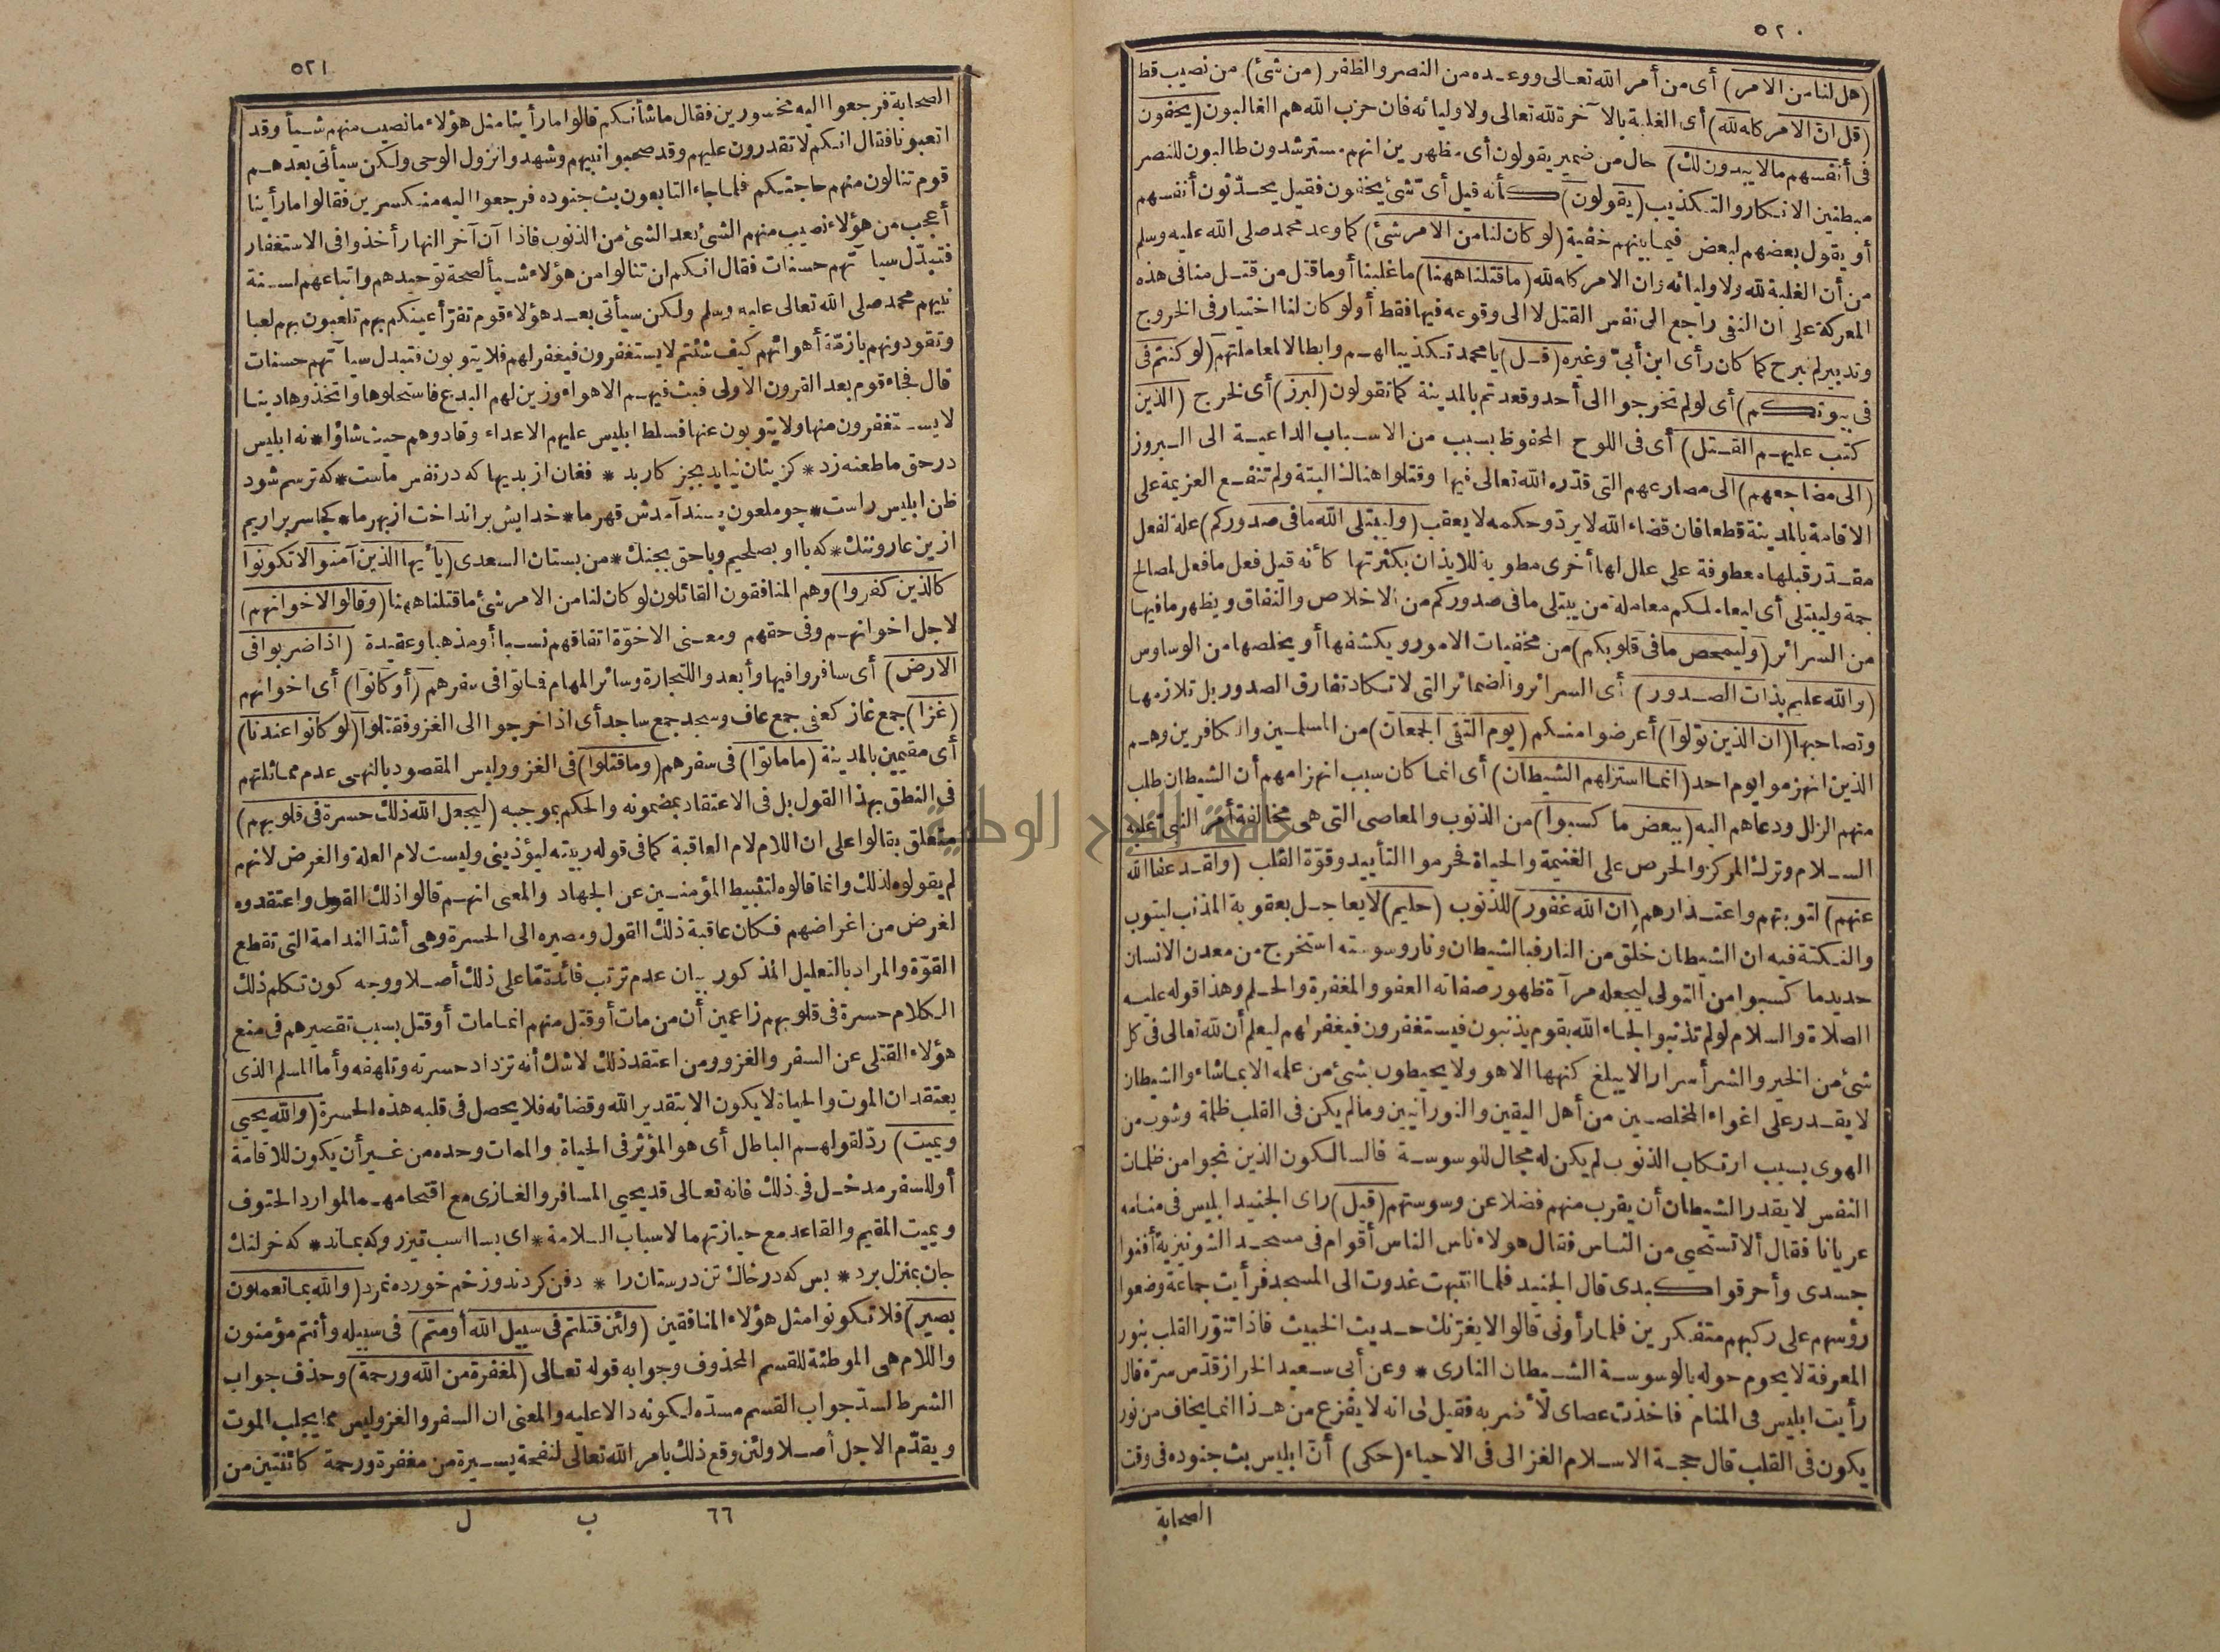 ٥٢٠
(هل لنا من الامر) أى من أمر الله تعالى ووعده من النصر والظفر (من شئ) من نصيب قط
(قل ان الامر كله لله) أى الغلبة بالآخرة لله تعالى ولاوليائه فان حزب الله هم الغالبون (يخفون
فى أنفسهم مالا يبدون لك) حال من ضمير يقولون أى مظهرين انهم مسترشدون طالبون للنصر
مبطنين الانكار والتكذيب (يقولون) كأنه قيل أى شئ يخفون فقيل يحدّثون أنفسهم
أو يقول بعضهم لبعض فيما بينهم خفية (لو كان لنا من الامر شئ) كما وعد محمد صلى الله عليه وسلم
من أن الغلبة لله ولاوليائه وان الامر كله لله (ما قتلنا ههنا) ما غلبنا أو ما قتل من قتل منا فى هذه
المعركة على ان النفى راجع الى نفس القتل لا الى وقوعه فيها فقط أو لو كان لنا اختيار فى الخروج
وتدبير لم نبرح كما كان رأى ابن أبىّ وغيره (قل) يا محمد تكذيبا لهم وابطالا لمعاملتهم (لو كنتم فى
فى بيوتكم) أى لو لم تخرجوا الى أحد وقعدتم بالمدينة كما تقولون (لبرز) أى لخرج (الذين
كتب عليهم القتل) أى فى اللوح المحفوظ بسبب من الاسباب الداعية الى البروز
(الى مضاجعهم) الى مصارعهم التى قدّره الله تعالى فيها وقتلوا هنالك البتة ولم تنفع العزيمة على
الاقامة بالمدينة قطعا فان قضاء الله لا يردّ وحكمه لا يعقب (وليبتلى الله ما فى صدوركم) علة لفعل
مقدّر قبلها معطوفة على علل لها أخرى مطوية للايذان بكثرتها كأنه قيل فعل ما فعل لمصالح
جمة وليبتلى أى ليعاملكم معاملة من يبتلى ما فى صدوركم من الاخلاص والنفاق ويظهر ما فيها
من السرائر (وليمحص ما فى قلوبكم) من مخفيات الامور ويكشفها أو يخلصها من الوساوس
(والله عليم بذات الصدور) أى السرائر والضمائر التى لا تكاد تفارق الصدور بل تلازمها
وتصاحبها (ان الذين تولوا) أعرضوا منكم (يوم التقى الجمعان) من المسلمين والكافرين وهم
الذين انهزموا يوم احد (انما استزلهم الشيطان) أى انما كان سبب انهزامهم أن الشيطان طلب
منهم الزلل ودعاهم اليه (ببعض ما كسبوا) من الذنوب والمعاصى التى هى مخالفة أمر النبى عليه
السلام وترك المركز والحرص على الغنيمة والحياة فحرموا التأييد وقوّة القلب (ولقد عفا الله
عنهم) لتوبتهم واعتذارهم (ان الله غفور) للذنوب (حليم) لا يعاجل بعقوبة المذنب ليتوب
والنكتة فيه ان الشيطان خلق من النار فبالشيطان ونار وسوسته استخرج من معدن الانسان
حديد ما كسبوا من التولى ليجعله مرآة ظهور صفاته العفو والمغفرة والحلم وهذا قوله عليه
الصلاة والسلام لو لم تذنبوا لجاء الله بقوم يذنبون فيستغفرون فيغفر لهم ليعلم أن لله تعالى فى كل
شئ من الخير والشر أسرار الا يبلغ كنهها الا هو ولا يحيطون بشئ من علمه الا بما شاء والشيطان
لا يقدر على اغواء المخلصين من أهل اليقين والنورانيين وما لم يكن فى القلب ظلمة وشوب من
الهوى بسبب ارتكاب الذنوب لم يكن له مجال للوسوسة فالسالكون الذين نجوا من ظلمات
النفس لا يقدر الشيطان أن يقرب منهم فضلا عن وسوستهم (قيل) رأى الجنيد ابليس فى منامه
عريانا فقال ألا تستحيى من الناس فقال هؤلاء ناس الناس أقوام فى مسجد الشونيزية أفنوا
جسدى وأحرقوا كبدى قال الجنيد فلما انتبهت غدوت الى المسجد فرأيت جماعة وضعوا
رؤسهم على ركبهم متفكرين فلما رأونى قالوا لا يغرّنك حديث الخبيث فاذا تنوّر القلب بنور
المعرفة لا يحوم حوله بالوسوسة الشيطان النارى * وعن أبى سعيد الخراز قدّس سرّه قال
رأيت ابليس فى المنام فاخذت عصاى لأضربه فقيل لى انه لا يفزع من هذا انما يخاف من نور
يكون فى القلب قال حجة الاسلام الغزالى فى الاحياء (حكى) أنّ ابليس بث جنوده فى وقت
الصحابة
٥٢١
الصحابة فرجعوا اليه مخسورين فقال ما شأنكم قالوا ما رأينا مثل هؤلاء ما نصيب منهم شيأ وقد
اتعبونا فقال انكم لا تقدرون عليهم وقد صحبوا نبيهم وشهدوا نزول الوحى ولكن سيأتى بعدهم
قوم تنالون منهم حاجتكم فلما جاء التابعون بث جنوده فرجعوا اليه منكسرين فقالوا ما رأينا
أعجب من هؤلاء نصيب منهم الشئ بعد الشئ من الذنوب فاذا آن آخر النهار أخذوا فى الاستغفار
فتبدّل سيآتهم حسنات فقال انكم ان تنالوا من هؤلاء شيأ لصحة توحيدهم واتباعهم لسنة
نبيهم محمد صلى الله تعالى عليه وسلم ولكن سيأتى بعد هؤلاء قوم تقرّ أعينكم بهم تلعبون بهم لعبا
وتقودونهم بازمّة أهوائهم كيف شئتم لا يستغفرون فيغفر لهم فلا يتوبون فتبدل سيآتهم حسنات
قال فجاء قوم بعد القرون الاولى فبث فيهم الاهواء وزين لهم البدع فاستحلوها واتخذوها دينا
لا يستغفرون منها ولا يتوبون عنها فسلط ابليس عليهم الاعداء وقادوهم حيث شاؤا * نه ابليس
درحق ما طعنه زد * كزينان نيايد بجز كاربد * فغان از بديها كه درنفس ماست * كه ترسم شود
ظن ابليس راست * چو ملعون پسند آمدش قهرما * خدايش برانداخت از بهرما * كجا سر برآريم
ازين عار وننك * كه با او بصلحيم وباحق بجنك * من بستان السعدى (يا أيها الذين آمنوا لا تكونوا
كالذين كفروا) وهم المنافقون القائلون لو كان لنا من الامر شئ ما قتلنا ههنا (وقالوا لاخوانهم)
لاجل اخوانهم وفى حقهم ومعنى الاخوّة اتفاقهم نسبا أو مذهبا وعقيدة (اذا ضربوا فى
الارض) أى سافروا فيها وأبعدوا للتجارة وسائر المهام فماتوا فى سفرهم (أو كانوا) أى اخوانهم
(غزا) جمع غاز كعفى جمع عاف وسجد جمع ساجد أى اذا خرجوا الى الغزو فقتلوا (لو كانوا عندنا)
أى مقيمين بالمدينة (ما ماتوا) فى سفرهم (وما قتلوا) فى الغزو وليس المقصود بالنهى عدم مماثلتهم
فى النطق بهذا القول بل فى الاعتقاد بمضمونه والحكم بموجبه (ليجعل الله ذلك حسرة فى قلوبهم)
متعلق بقالوا على ان اللام لام العاقبة كما فى قوله ربيته ليؤذينى وليست لام العلة والغرض لانهم
لم يقولوه لذلك وانما قالوه لتثبيط المؤمنين عن الجهاد والمعنى انهم قالوا ذلك القول واعتقدوه
لغرض من اغراضهم فكان عاقبة ذلك القول ومصيره الى الحسرة وهى أشدّ الندامة التى تقطع
القوّة والمراد بالتعليل المذكور بيان عدم ترتب فائدة مّا على ذلك أصلا ووجه كون تكلم ذلك
الكلام حسرة فى قلوبهم زاعمين أن من مات أو قتل منهم انما مات أو قتل بسبب تقصيرهم فى منع
هؤلاء القتلى عن السفر والغزو ومن اعتقد ذلك لا شك أنه تزداد حسرته وتلهفه وأما المسلم الذى
يعتقد ان الموت والحياة لا يكون الا بتقدير الله وقضائه فلا يحصل فى قلبه هذه الحسرة (والله يحيى
ويميت) ردّ لقولهم الباطل أى هو المؤثر فى الحياة والممات وحده من غير أن يكون للاقامة
أو للسفر مدخل فى ذلك فانه تعالى قد يحيى المسافر والغازى مع اقتحامهما لموارد الحتوف
ويميت المقيم والقاعد مع حيازتهما لاسباب السلامة * اى بسا اسب تيزرو كه بماند * كه خر لنك
جان بمنزل برد * بس كه درخاك تن درستان را * دفن كردند وزخم خورده نمرد (والله بما تعملون
بصير) فلا تكونوا مثل هؤلاء المنافقين (ولئن قتلتم فى سبيل الله أو متم) فى سبيله وأنتم مؤمنون
واللام هى الموطئة للقسم المحذوف وجوابه قوله تعالى (لمغفرة من الله ورحمة) وحذف جواب
الشرط لسدّ جواب القسم مسدّه لكونه دالا عليه والمعنى ان السفر والغزو ليس مما يجلب الموت
ويقدّم الاجل أصلا ولئن وقع ذلك بامر الله تعالى لنفحة يسيرة من مغفرة ورحمة كائنتين من
٦٦ ب ل